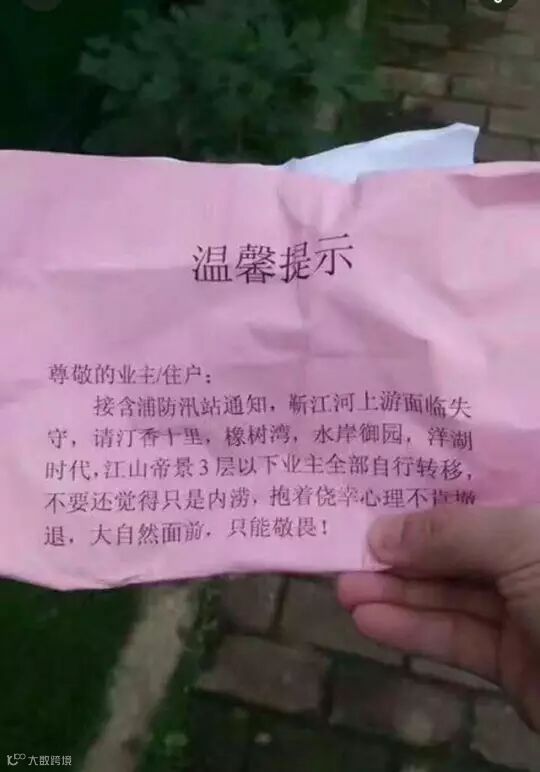 温馨提示
尊敬的业主/住户：
接含浦防汛站通知，靳江河上游面临失
守，请汀香十里，橡树湾，水岸御园，洋湖
时代，江山帝景3层以下业主全部自行转移，
不要还觉得只是内涝，抱着侥幸心理不肯撤
退，大自然面前，只能敬畏！
大数跨境